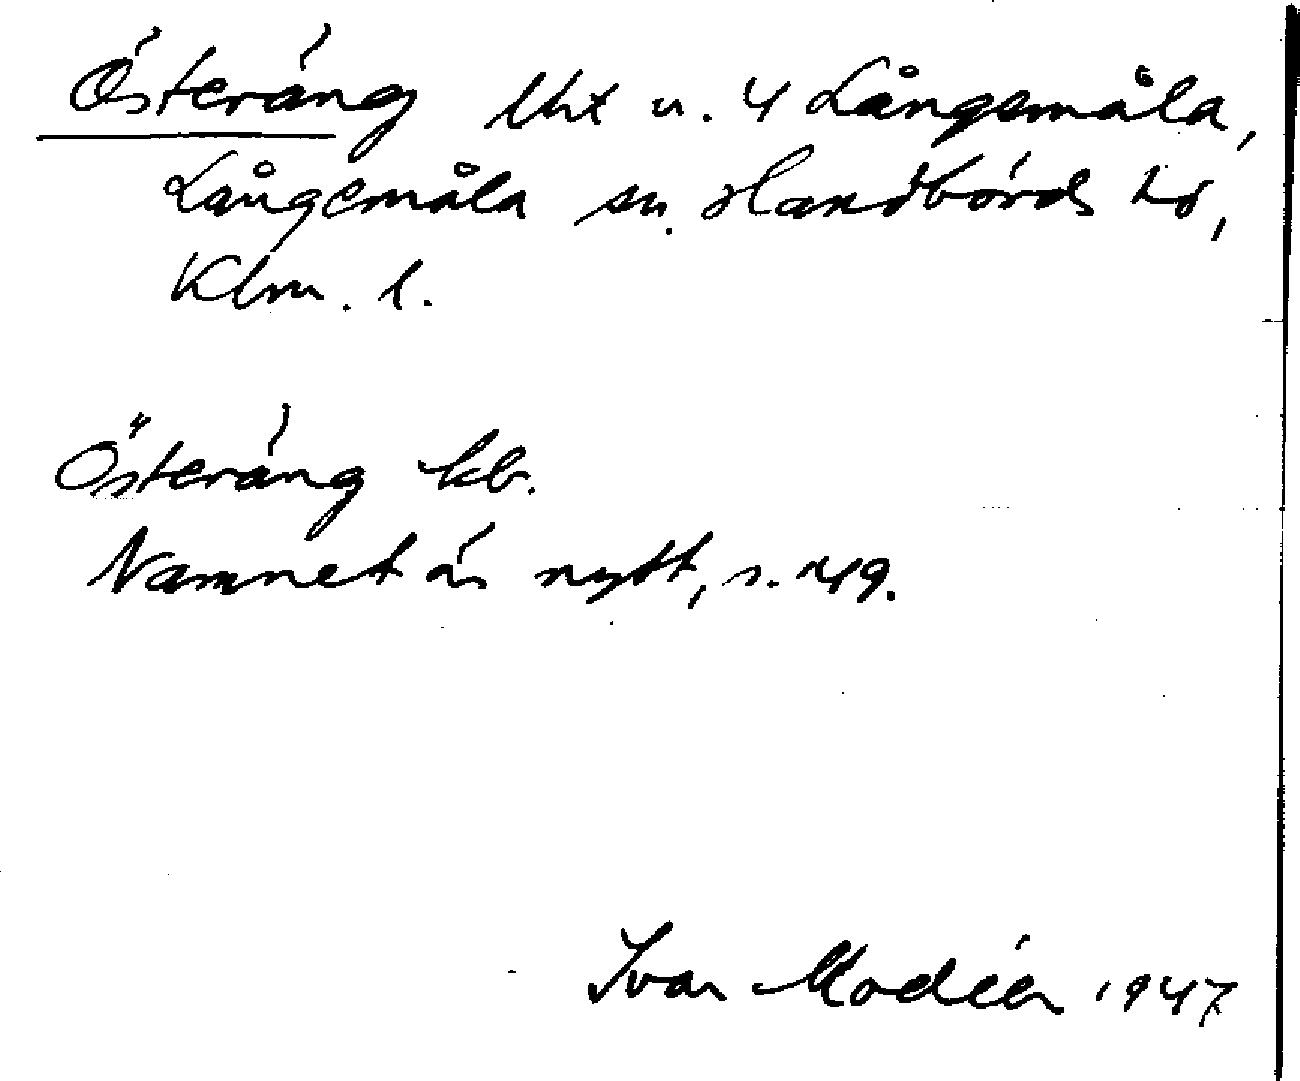 Österäng lht u. 4 Långemåla,
Långemåla sn. Handbörds hd,
Klm. l.
Österäng kb.
Namnet är nytt, s. 149.
Ivar Modéer 1947